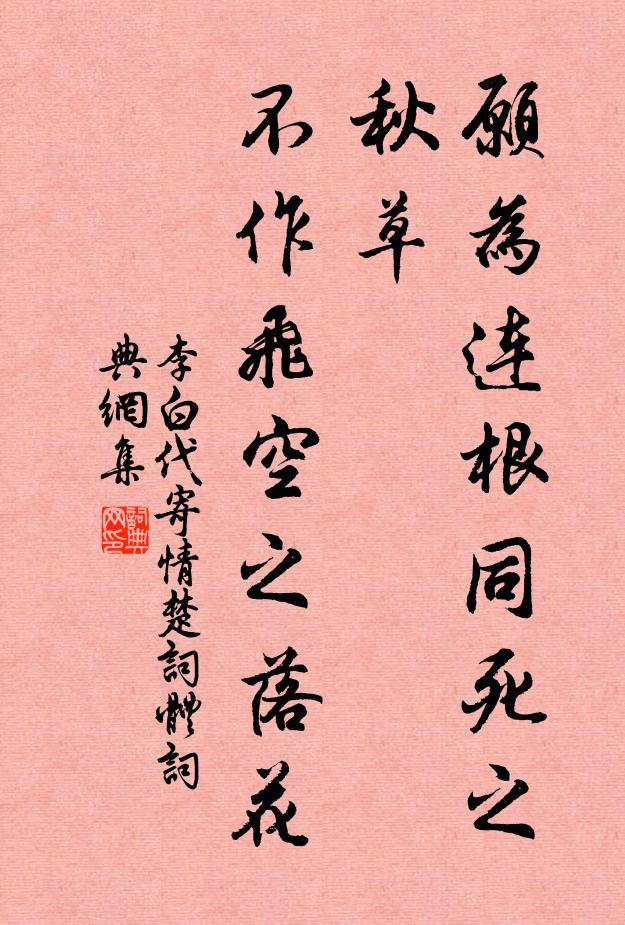 願為連根同死之
秋草
不作飛空之落花
李白代寄情楚詞體詞
典網集
詞典
网印